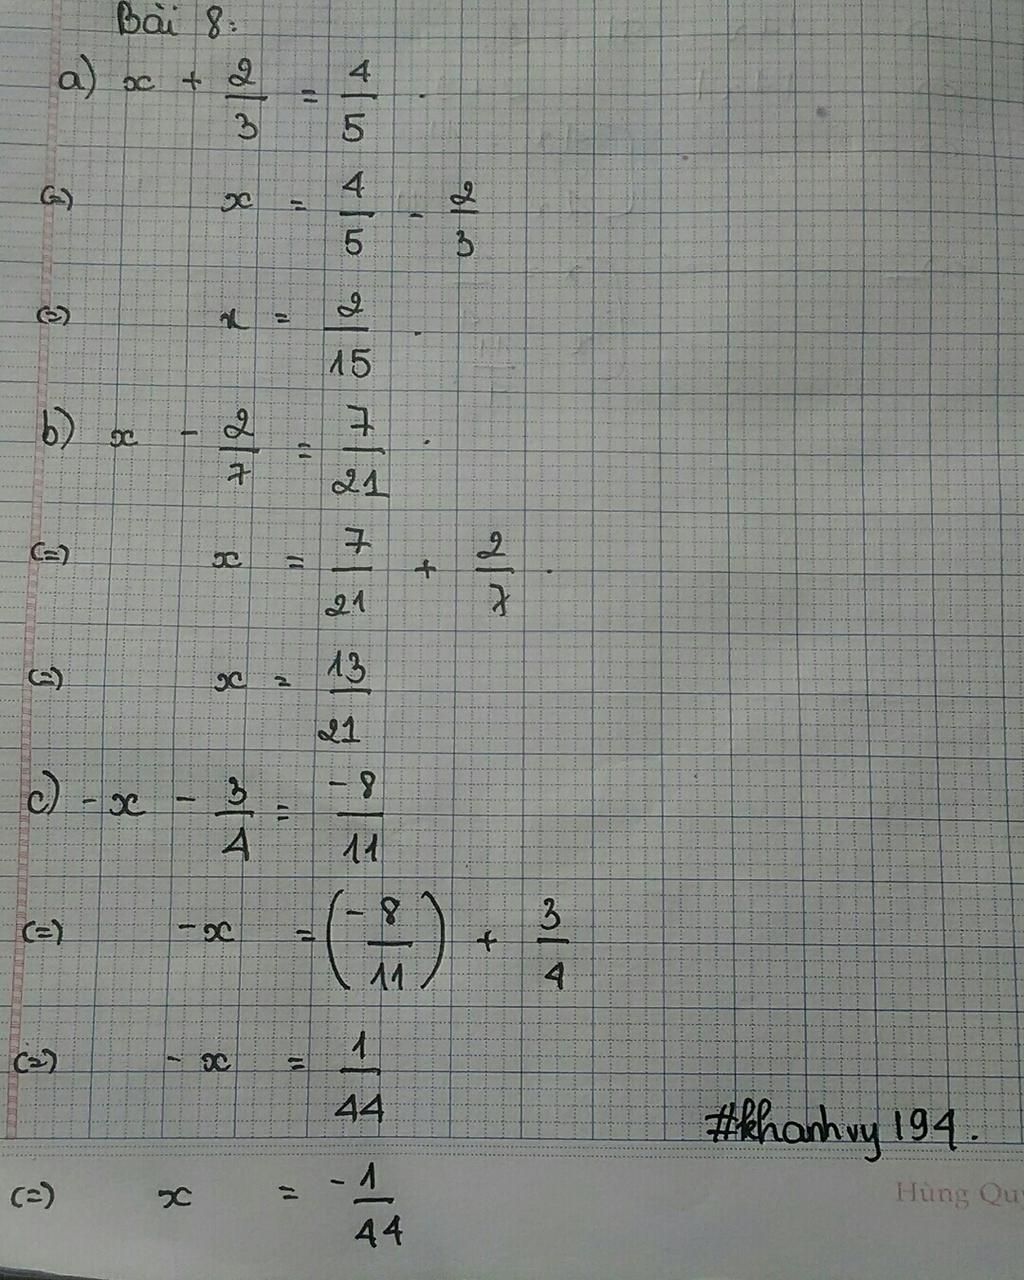 Bài 8:
a) x + 2/3 = 4/5 .
(=) x = 4/5 - 2/3
(=) x = 2/15 .
b) x - 2/7 = 7/21 .
(=) x = 7/21 + 2/7 .
(=) x = 13/21
c) -x - 3/4 = -8/11
(=) -x = (-8/11) + 3/4
(=) -x = 1/44
#khanhvy194.
(=) x = -1/44
Hùng Qu